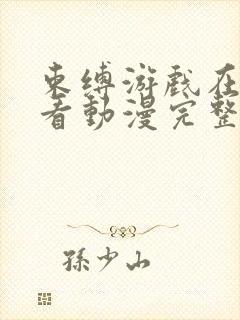 束缚游戏在
看動漫完整
孫少山